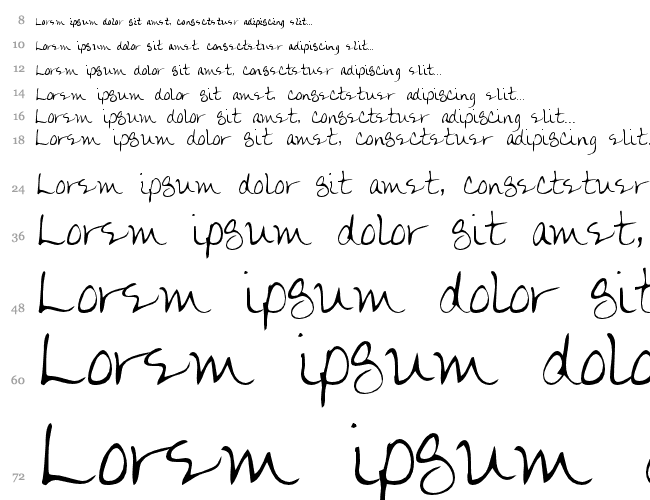 8 Lorem ipsum dolor sit amet, consectetuer adipiscing elit...
10 Lorem ipsum dolor sit amet, consectetuer adipiscing elit...
12 Lorem ipsum dolor sit amet, consectetuer adipiscing elit...
14 Lorem ipsum dolor sit amet, consectetuer adipiscing elit...
16 Lorem ipsum dolor sit amet, consectetuer adipiscing elit...
18 Lorem ipsum dolor sit amet, consectetuer adipiscing elit.
24 Lorem ipsum dolor sit amet, consectetuer
36 Lorem ipsum dolor sit amet,
48 Lorem ipsum dolor sit
60 Lorem ipsum dolo
72 Lorem ipsum